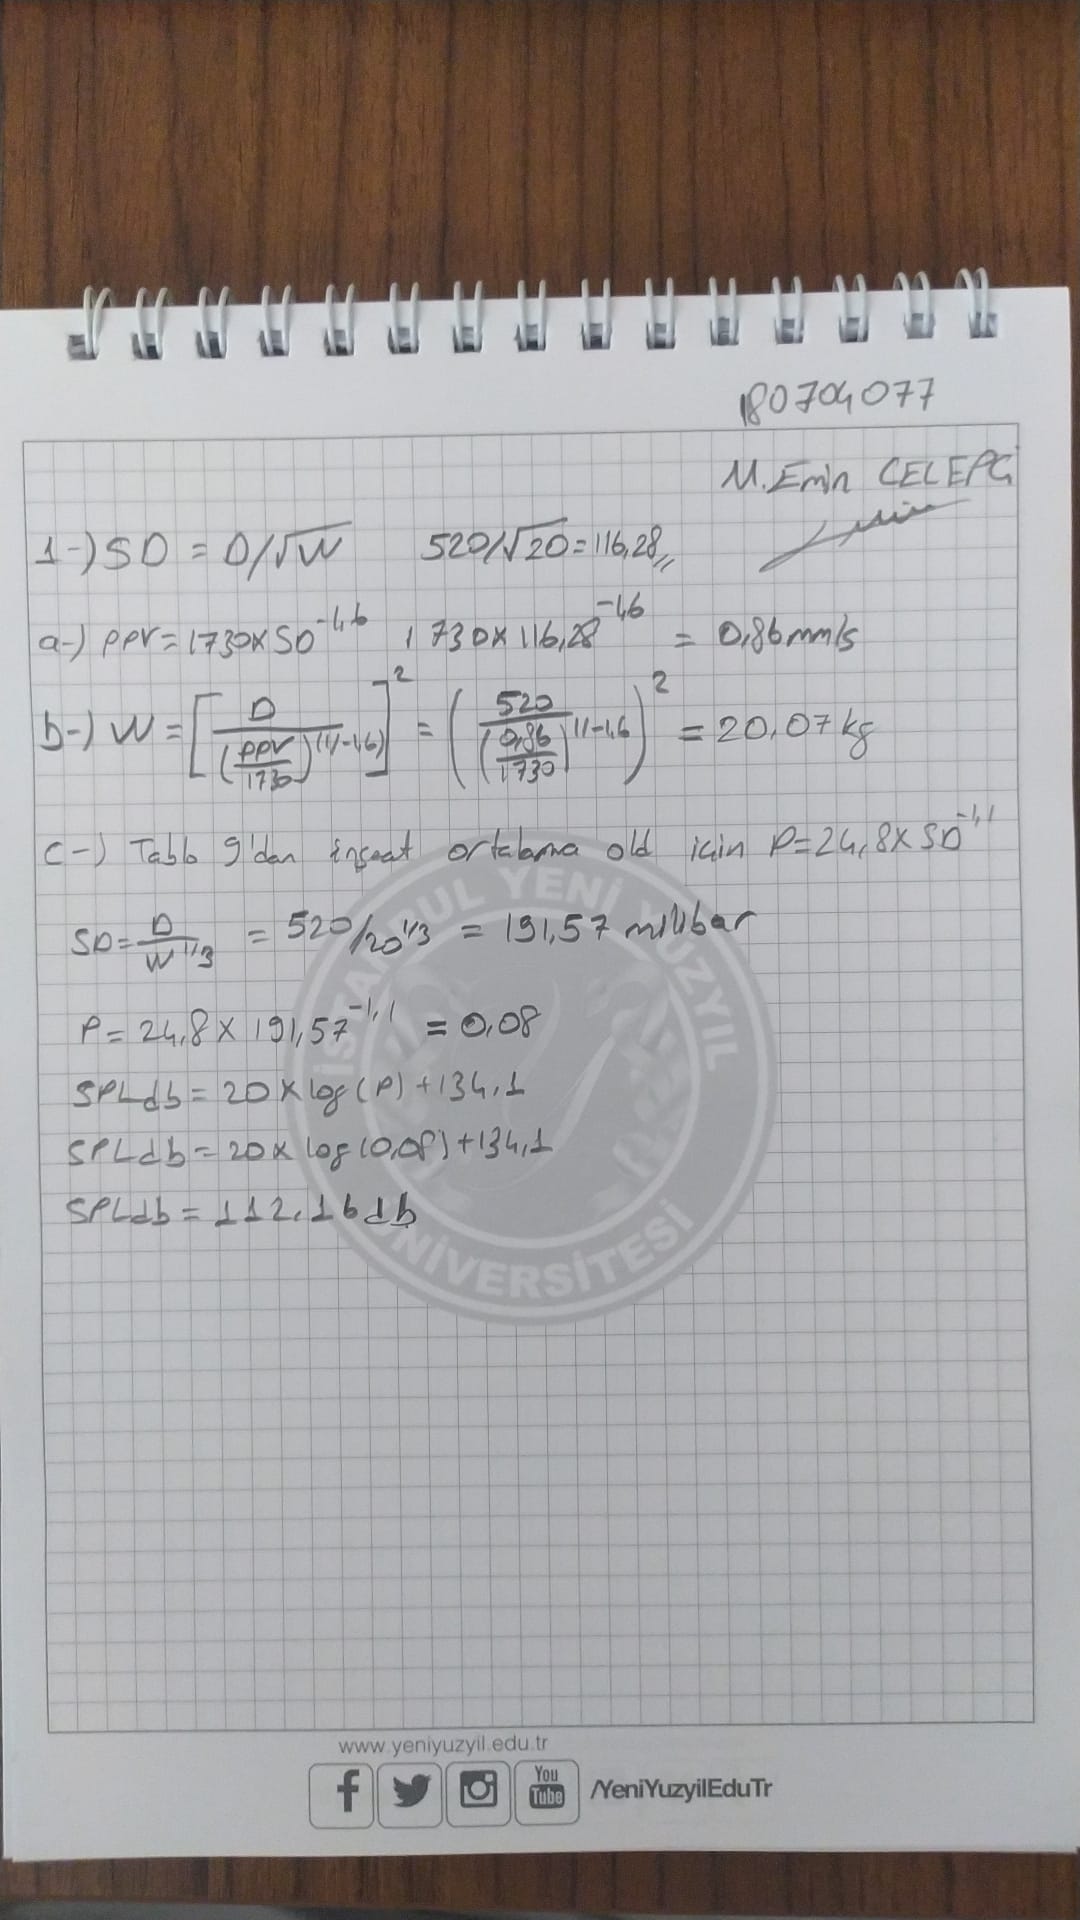 180704077
M.Emin CELEPCİ
1-) SD = D/√W 520/√20 = 116,28//
a-) PPV = 1730 x SD^-1,6 1730 x 116,28^-1,6 = 0,86 mm/s
b-) W = [D/(PPV/1730)^(1/-1,6)]^2 = (520/(0,86/1730)^1/-1,6)^2 = 20,07 kg
c-) Tablo 9'dan inşaat ortalama old için P=24,8 x SD^-1,1
SD = D/W^1/3 = 520/20^1/3 = 191,57 milibar
P = 24,8 x 191,57^-1,1 = 0,08
SPLdb = 20 x log(P) + 134,1
SPLdb = 20 x log(0,08) + 134,1
SPLdb = 112,16db
İSTANBUL YENİ YÜZYIL ÜNİVERSİTESİ
www.yeniyuzyil.edu.tr
f You Tube /YeniYuzyilEduTr